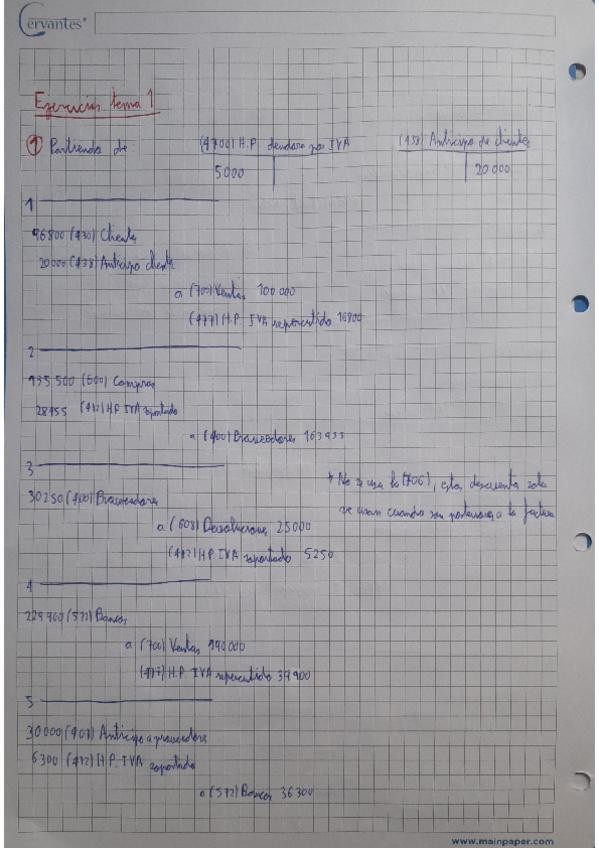 Cervantes®
Ejercicios tema 1
① Partiendo de: (4700) H.P. deudora por IVA (438) Anticipo de clientes
5000 20000
1
96800 (430) Clientes
20000 (438) Anticipo clientes
a (700) Ventas 100000
(477) H.P. IVA repercutido 16800
2
135500 (600) Compras
28455 (472) H.P. IVA soportado
a (400) Proveedores 163955
3
* No se usa la (706), estos descuentos solo
30250 (400) Proveedores
se usan cuando son posteriores a la factura
a (608) Devoluciones 25000
(472) H.P. IVA soportado 5250
4
229900 (572) Bancos
a (700) Ventas 190000
(477) H.P. IVA repercutido 39900
5
30000 (407) Anticipo a proveedores
6300 (472) H.P. IVA soportado
a (572) Bancos 36300
www.mainpaper.com